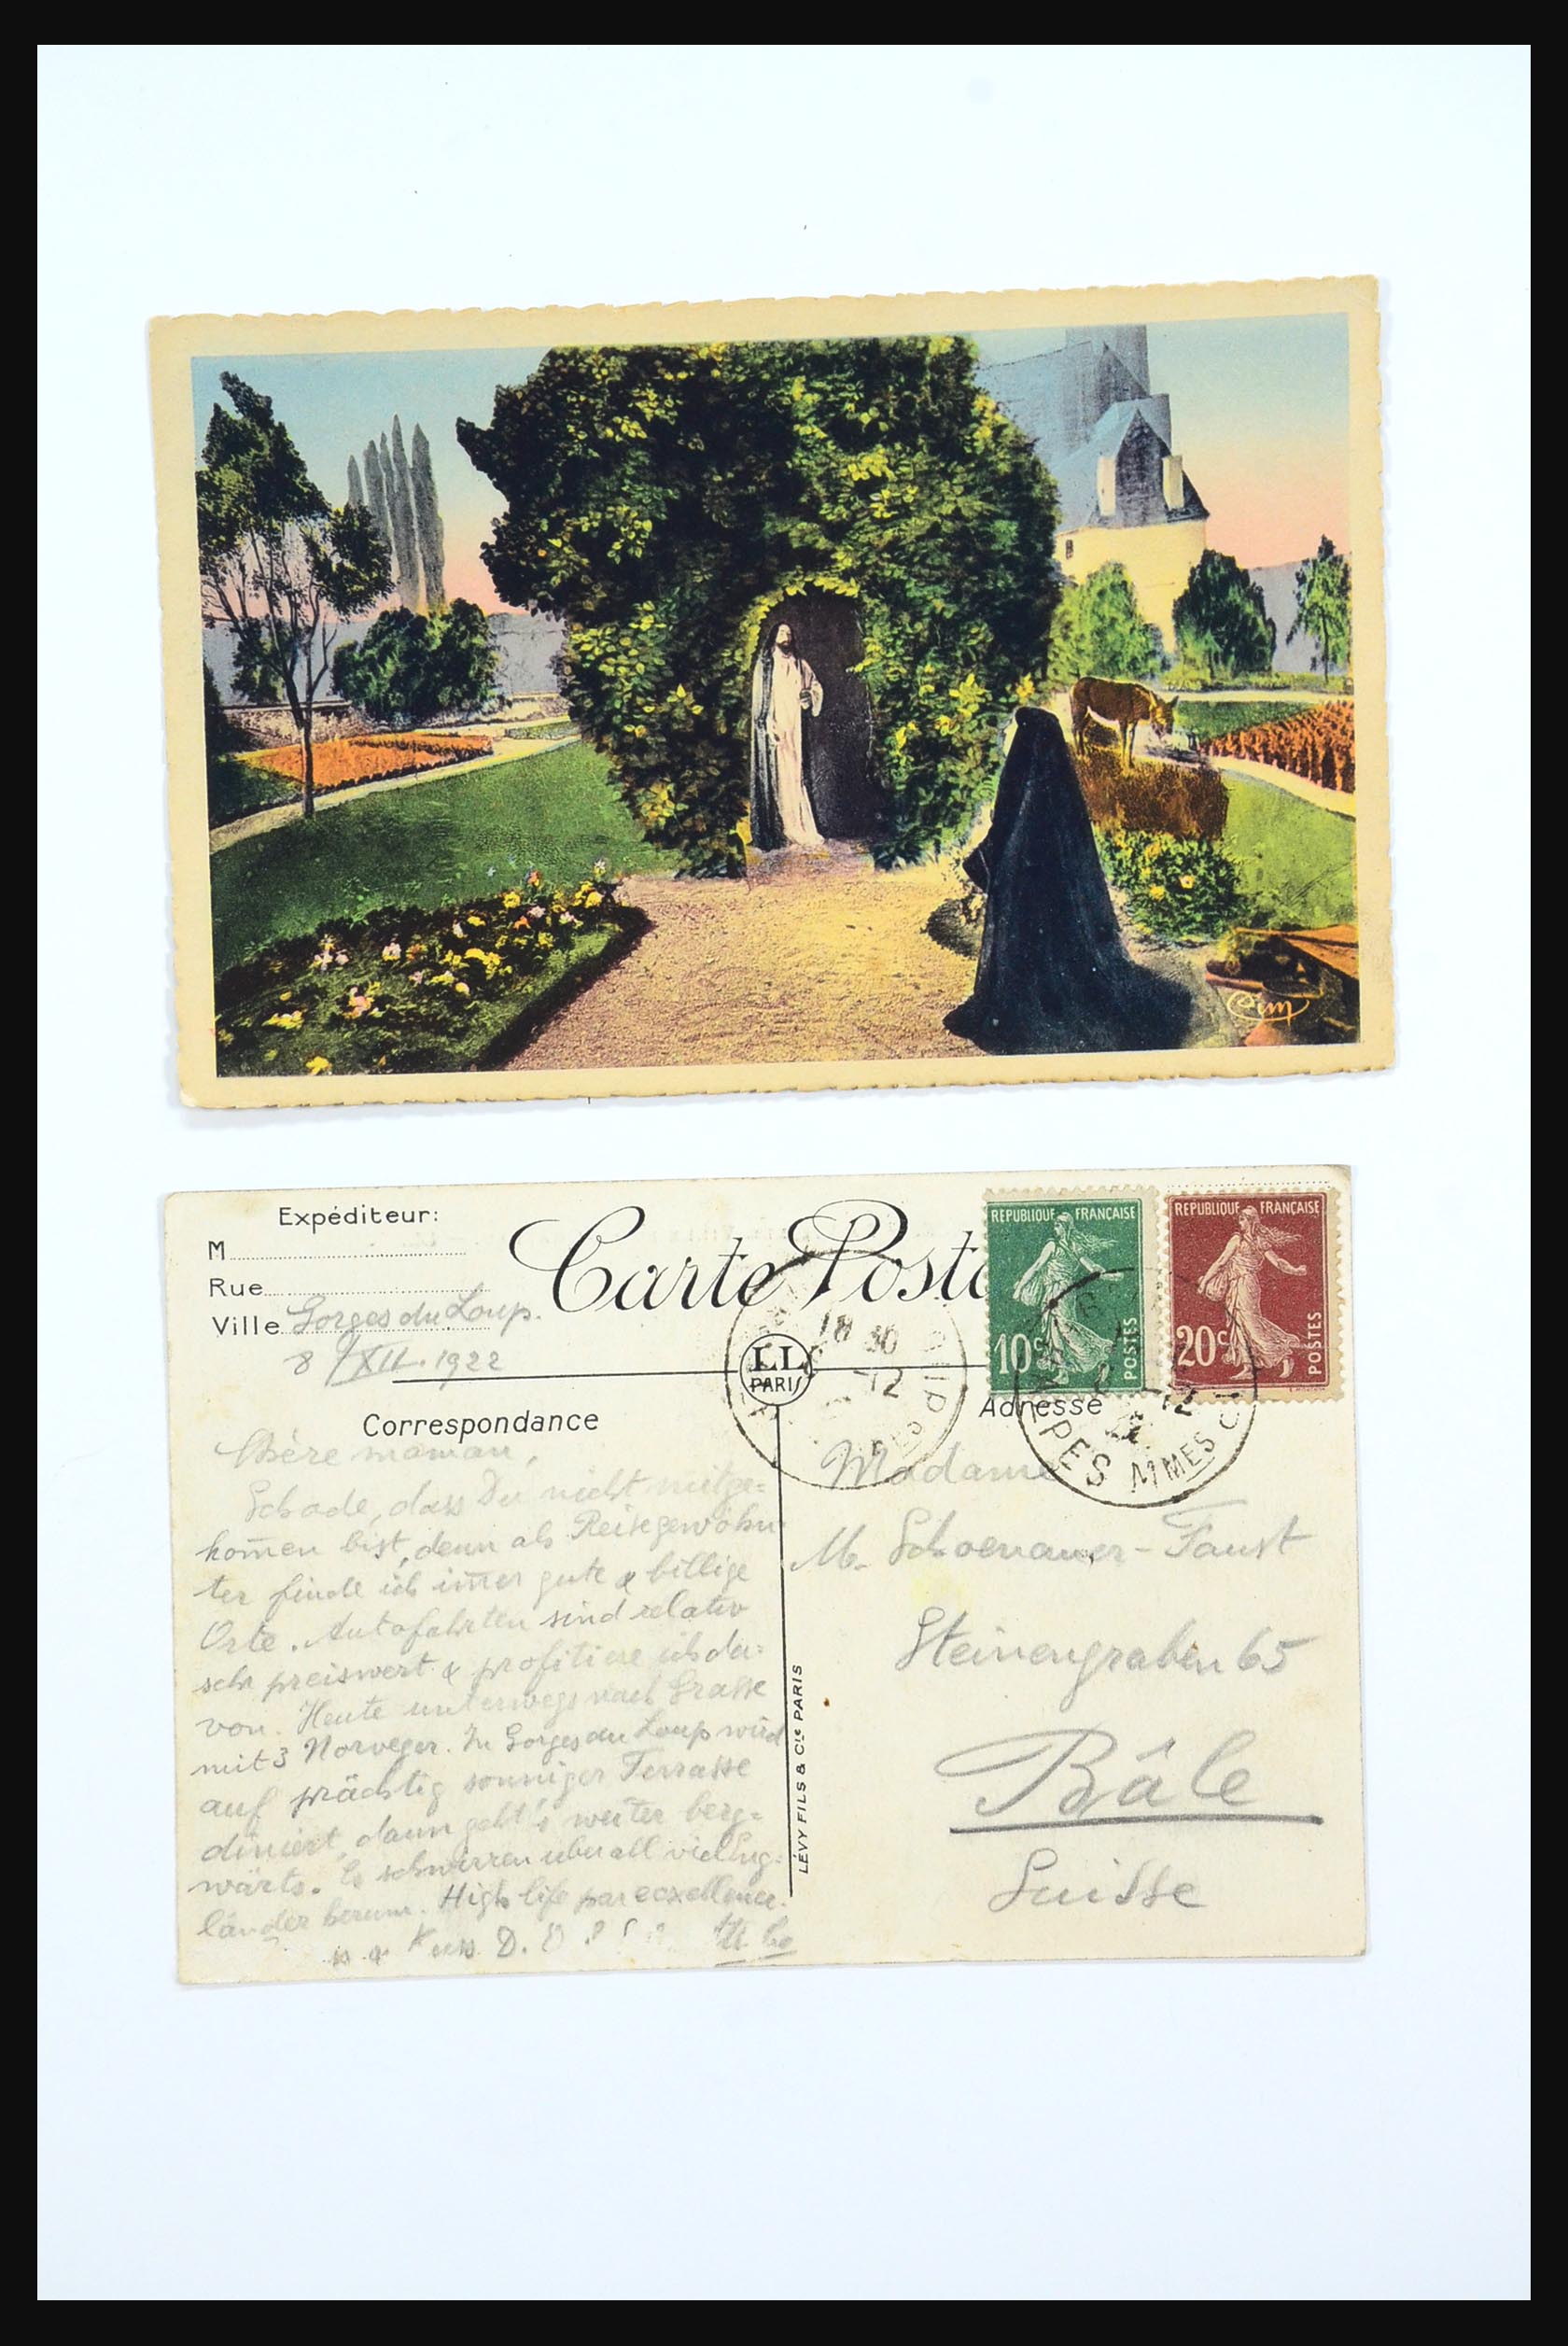 Cim
Expéditeur:
M
Rue
Ville Gorges du Loup.
8/XII. 1922
Carte Posta
REPUBLIQUE FRANÇAISE
10c
POSTES
REPUBLIQUE FRANÇAISE
20c
POSTES
18 30
12
LL
PARIS
ALPES MMES
Correspondance
Adresse
Chère maman,
Schade, dass Du nicht mitge=
kom̅en bist, denn als Reisegewohn
ter finde ich im̅er gute & billige
Orte. Autofahrten sind relativ
sehr preiswert & profitiere ich da=
von. Heute unterwegs nach Grasse
mit 3 Norveger. In Gorges du Loup wird
auf prächtig sonniger Terrasse
diniert, dann geht's weiter berg=
wärts. Es schwirren uberall viel Eng=
länder herum. High life par excellence.
Kuss D.
Madame
M. Schoenauer-Faust
Steinengraben 65
Bâle
Suisse
LÉVY FILS & Cie PARIS